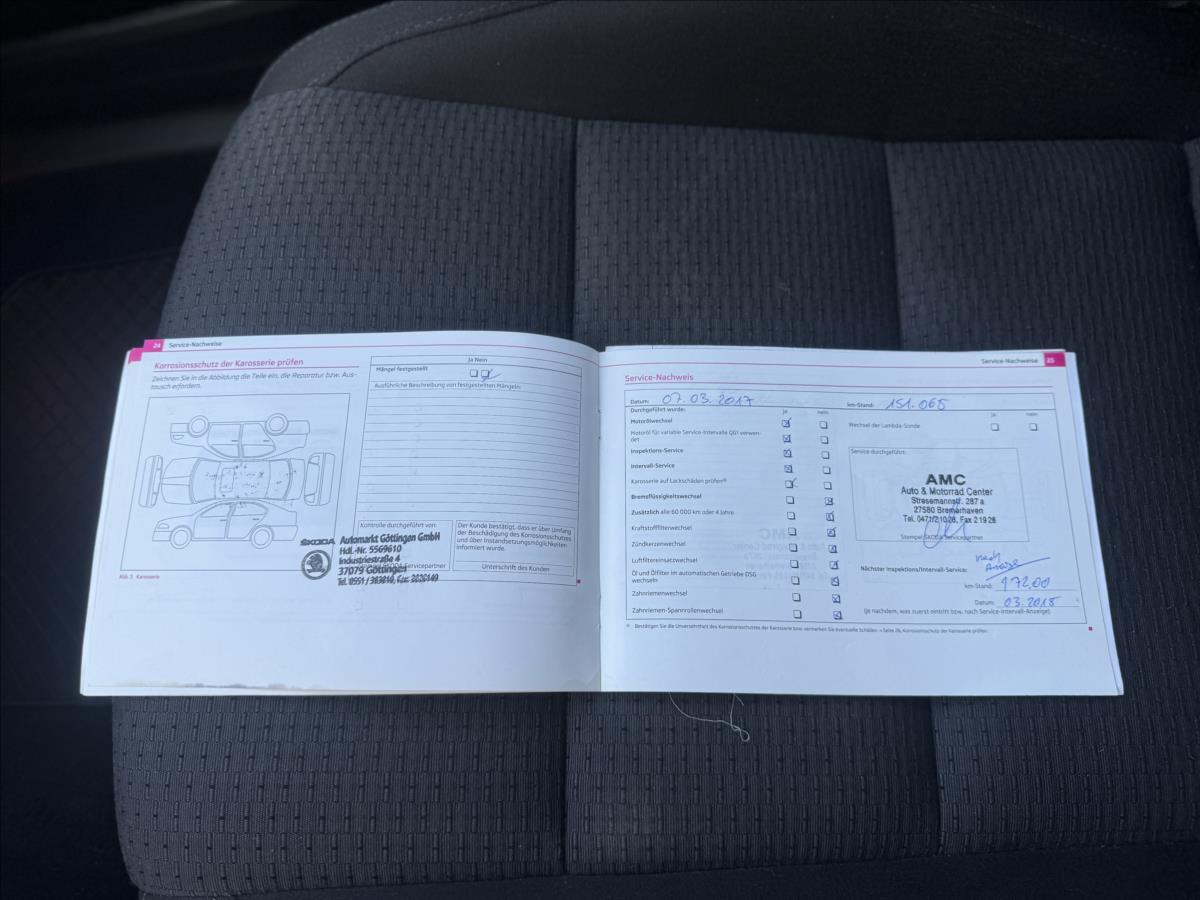 24 Service-Nachweise
Korrosionsschutz der Karosserie prüfen
Zeichnen Sie in die Abbildung die Teile ein, die Reparatur bzw. Aus-
tausch erfordern.
Abb. 3 Karosserie
Ja Nein
Mängel festgestellt
Ausführliche Beschreibung von festgestellten Mängeln:
Kontrolle durchgeführt von:
SKODA Automarkt Göttingen GmbH
Hdl.-Nr. 5569610
Industriestraße 4
37079 Göttingen
Tel. 0551 /
Servicepartner
Der Kunde bestätigt, dass er über Umfang
der Beschädigung des Korrosionsschutzes
und über Instandsetzungsmöglichkeiten
informiert wurde.
Unterschrift des Kunden
Service-Nachweise 25
Service-Nachweis
Datum: 07.03.2017
km-Stand: 151.065
Durchgeführt wurde: ja nein
Motorölwechsel
Motoröl für variable Service-Intervalle QG1 verwen-
det
Inspektions-Service
Intervall-Service
Karosserie auf Lackschäden prüfen
Bremsflüssigkeitswechsel
Zusätzlich alle 60 000 km oder 4 Jahre
Kraftstofffilterwechsel
Zündkerzenwechsel
Luftfiltereinsatzwechsel
Öl und Ölfilter im automatischen Getriebe DSG
wechseln
Zahnriemenwechsel
Zahnriemen-Spannrollenwechsel
ja nein
Wechsel der Lambda-Sonde
Service durchgeführt:
AMC
Auto & Motorrad Center
Stresemannstr. 287 a
27580 Bremerhaven
Tel. 0471/21026, Fax 21928
Stempel ŠKODA Servicepartner
Nächster Inspektions/Intervall-Service: nach
Anzeige
km-Stand: 172.00
Datum: 03.2018
(je nachdem, was zuerst eintritt bzw. nach Service-Intervall-Anzeige)
Bestätigen Sie die Unversehrtheit des Korrosionsschutzes der Karosserie bzw. vermerken Sie eventuelle Schäden » Seite 24, Korrosionsschutz der Karosserie prüfen.